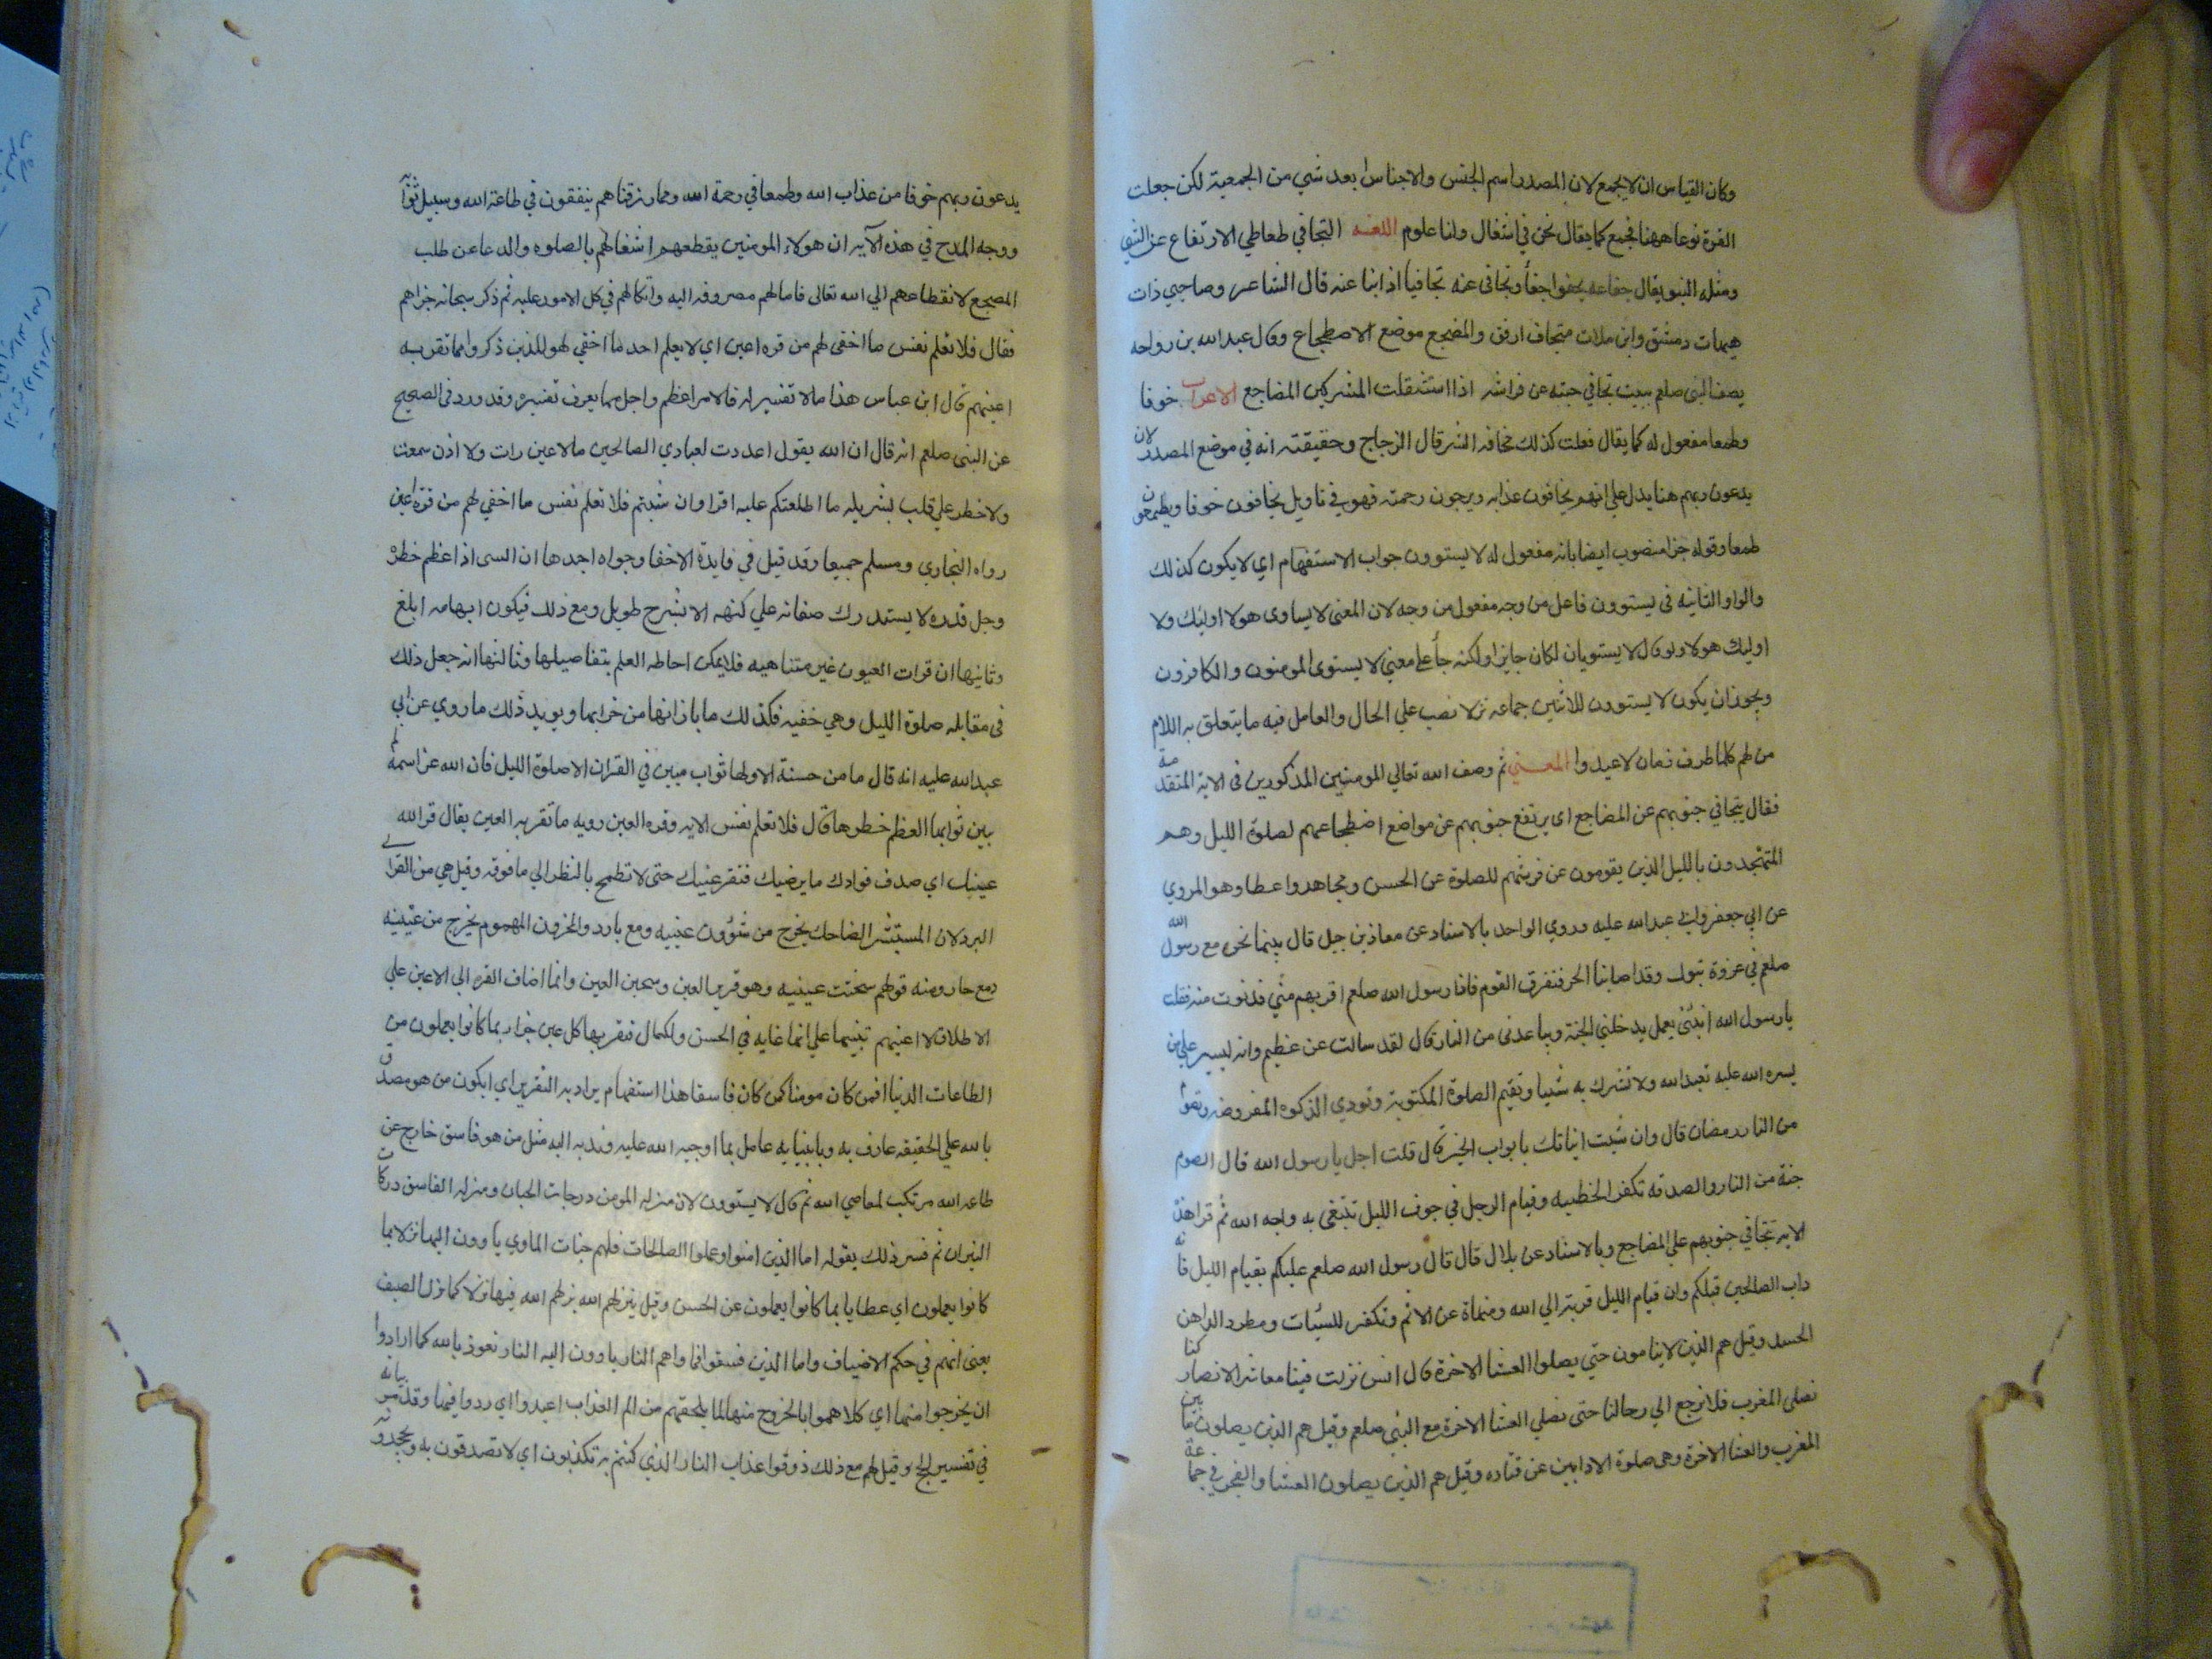 وكان القياس ان لا يجمع لان المصدر اسم الجنس والاجناس ابعد شي من الجمعية لكن جعلت
القرة نوعا ههنا فجمع كما يقال نحن في اشغال ولنا علوم اللغـه التجافي طعاطي الارتفاع عن الشي
ومثله النبو يقال جفا عنه يجفوا جفأ وتجافى عنه تجافيا اذا نبا عنه قال الشاعر وصاحبي ذات
هبمات دمشق وابن ملات متجاف ارفق والمضجع موضع الاضطجاع وقال عبدالله بن رواحه
يصف النبي صلعم يبيت يجافي جنبه عن فراشه اذا استثقلت المشركين المضاجع الاعراب خوفا
وطمعا مفعول له كما يقال فعلت كذلك مخافه الشر قال الزجاج وحقيقته انه في موضع المصدر لان
يدعون ربهم هنا يدل علي انهم يخافون عذابه ويرجون رحمته فهو في تاويل يخافون خوفا ويطمعون
طمعا وقوله جزا منصوب ايضا بانه مفعول له لا يستوون جواب الاستفهام اي لا يكون كذلك
والواو الثانيه في يستوون فاعل من وجه مفعول من وجه لان المعنى لا يساوى هولا اوليك ولا
اوليك هولا ولو قال لا يستويان لكان جايزا ولكنه جأ علي معني لا يستوى المومنون والكافرون
ويجوز ان يكون لا يستوون للاثنين جماعه نزلا نصب علي الحال والعامل فيه ما يتعلق به اللام
من لهم كلما ظرف زمان لاعيدوا المعـني ثم وصف الله تعالي المومنين المذكورين فى الاية المتقدمة
فقال يتجافي جنوبهم عن المضاجع اى يرتفع جنوبهم عن مواضع اضطجاعهم لصلوة الليل وهم
المتهجدون بالليل الذين يقومون عن فرشهم للصلوة عن الحسن ومجاهد وعطا وهو المروي
عن ابي جعفر وابي عبدالله عليه وروي الواحد بالاسناد عن معاذ بن جبل قال بينما نحن مع رسول الله
صلعم في غزوة تبوك وقد اصابنا الحر فتفرق القوم فاذا رسول الله صلعم اقربهم مني فدنوت منه فقلت
يا رسول الله انبئني بعمل يدخلني الجنة ويباعدني من النار قال لقد سالت عن عظيم وانه ليسير علي من
يسره الله عليه تعبد الله ولا تشرك به شيا وتقيم الصلوة المكتوبة وتودي الزكوه المفروضه وتصوم
من النار رمضان قال وان شيت انباتك بابواب الخير قال قلت اجل يا رسول الله قال الصوم
جنة من النار والصدقه تكفر الخطييه وقيام الرجل في جوف الليل تبتغي به واجه الله ثم قرا هذه
الايه تتجافي جنوبهم علي المضاجع وبالاسناد عن بلال قال قال رسول الله صلعم عليكم بقيام الليل فانه
داب الصالحين قبلكم وان قيام الليل قربة الي الله ومنهاة عن الاثم وتكفير للسيئات ومطرد الداهن
الحسد وقيل هم الذين لا ينامون حتي يصلوا العشا الاخرة قال انس نزلت فينا معاشر الانصار كنا
نصلى المغرب فلا نرجع الي رحالنا حتى نصلي العشا الاخرة مع النبي صلعم وقيل هم الذين يصلون ما بين
المغرب والعشا الاخرة وهى صلوة الاوابين عن قتاده وقيل هم الذين يصلون العشا والفجر في جماعة
يدعون ربهم خوفا من عذاب الله وطمعا في رحمة الله ومما رزقناهم ينفقون في طاعة الله وسبيل ثوابه
ووجه المدح في هذه الآيه ان هولاء المومنين يقطعهم اشغالهم بالصلوه والدعا عن طلب
المضجع لانقطاعهم الي الله تعالى فامالهم مصروفه اليه واتكالهم في كل الامور عليه ثم ذكر سبحانه جزاهم
فقال فلا تعلم نفس ما اخفى لهم من قره اعين اي لا يعلم احد ما اخفي لهولا الذين ذكروا مما تقر به
اعينهم قال ابن عباس هذا ما لا تفسير له فالامر اعظم واجل مما يعرف تفسيره وقد ورد فى الصحيح
عن النبى صلعم انه قال ان الله يقول اعددت لعبادي الصالحين ما لا عين رات ولا اذن سمعت
ولا خطر علي قلب بشر بله ما اطلعتكم عليه اقراوا ان شيتم فلا تعلم نفس ما اخفي لهم من قرة اعين
رواه البخارى ومسلم جميعا وقد قيل في فايدة الاخفا وجوه احدها ان الشى اذا عظم خطره
وجل قدره لا يستدرك صفاته علي كنهه الا بشرح طويل ومع ذلك فيكون ابهامه ابلغ
وثانيها ان قرات العيون غير متناهيه فلا يمكن احاطه العلم بتفاصيلها وثالثها انه جعل ذلك
فى مقابله صلوة الليل وهي خفيه فكذلك ما بازانها من خزايها ويويد ذلك ما روي عن ابي
عبدالله عليه انه قال ما من حسنة الا ولها ثواب مبين في القران الا صلوة الليل فان الله عز اسمه لم
يبين ثوابها العظم خطرها قال فلا تعلم نفس الايه وقره العين رويه ما تقر به العين يقال قر الله
عينك اي صدف فوادك ما يرضيك فتقر عينيك حتى لا تطمح بالنظر الي ما فوقه وقيل هي من القرا
البرد لان المستبشر الضاحك يخرج من شؤون عينيه دمع بارد والمحزون المهموم يخرج من عينيه
دمع حار ومنه قولهم سخنت عينيه وهو قرير العين وسخين العين وانما اضاف القره الي الاعين علي
الاطلاق لا اعينهم تنبيها علي انها غايه في الحسن والكمال فتقر بها كل عين جزا بما كانوا يعملون من
الطاعات الدنيا افمن كان مومنا كمن كان فاسقا هذا استفهام يراد به التقرير اي ايكون من هو مصدق
بالله علي الحقيقه عارف به وبانبيايه عامل بما اوجبه الله عليه وندبه اليه مثل من هو فاسق خارج عن
طاعه الله مرتكب لمعاصي الله ثم قال لا يستوون لان منزله المومن درجات الجنان ومنزله الفاسق دركات
النيران ثم فسر ذلك بقوله اما الذين امنوا وعملوا الصالحات فلهم جنات الماوي ياوون اليها نزلا بما
كانوا يعملون اي عطايا بما كانوا يعملون عن الحسن وقيل ينزلهم الله فيها نزلا كما نزل الضيف
يعنى انهم في حكم الاضياف واما الذين فسقوا فماواهم النار ياوون اليه النار نعوذ بالله كما ارادوا
ان يخرجوا منها اي كلا هموا بالخروج منها لما يلحقهم من الم العذاب اعيدوا اي ردوا فيها وقد مر بيانه
في تفسير الحج وقيل لهم مع ذلك ذوقوا عذاب النار الذي كنتم به تكذبون اي لا تصدقون به وتجحدونه